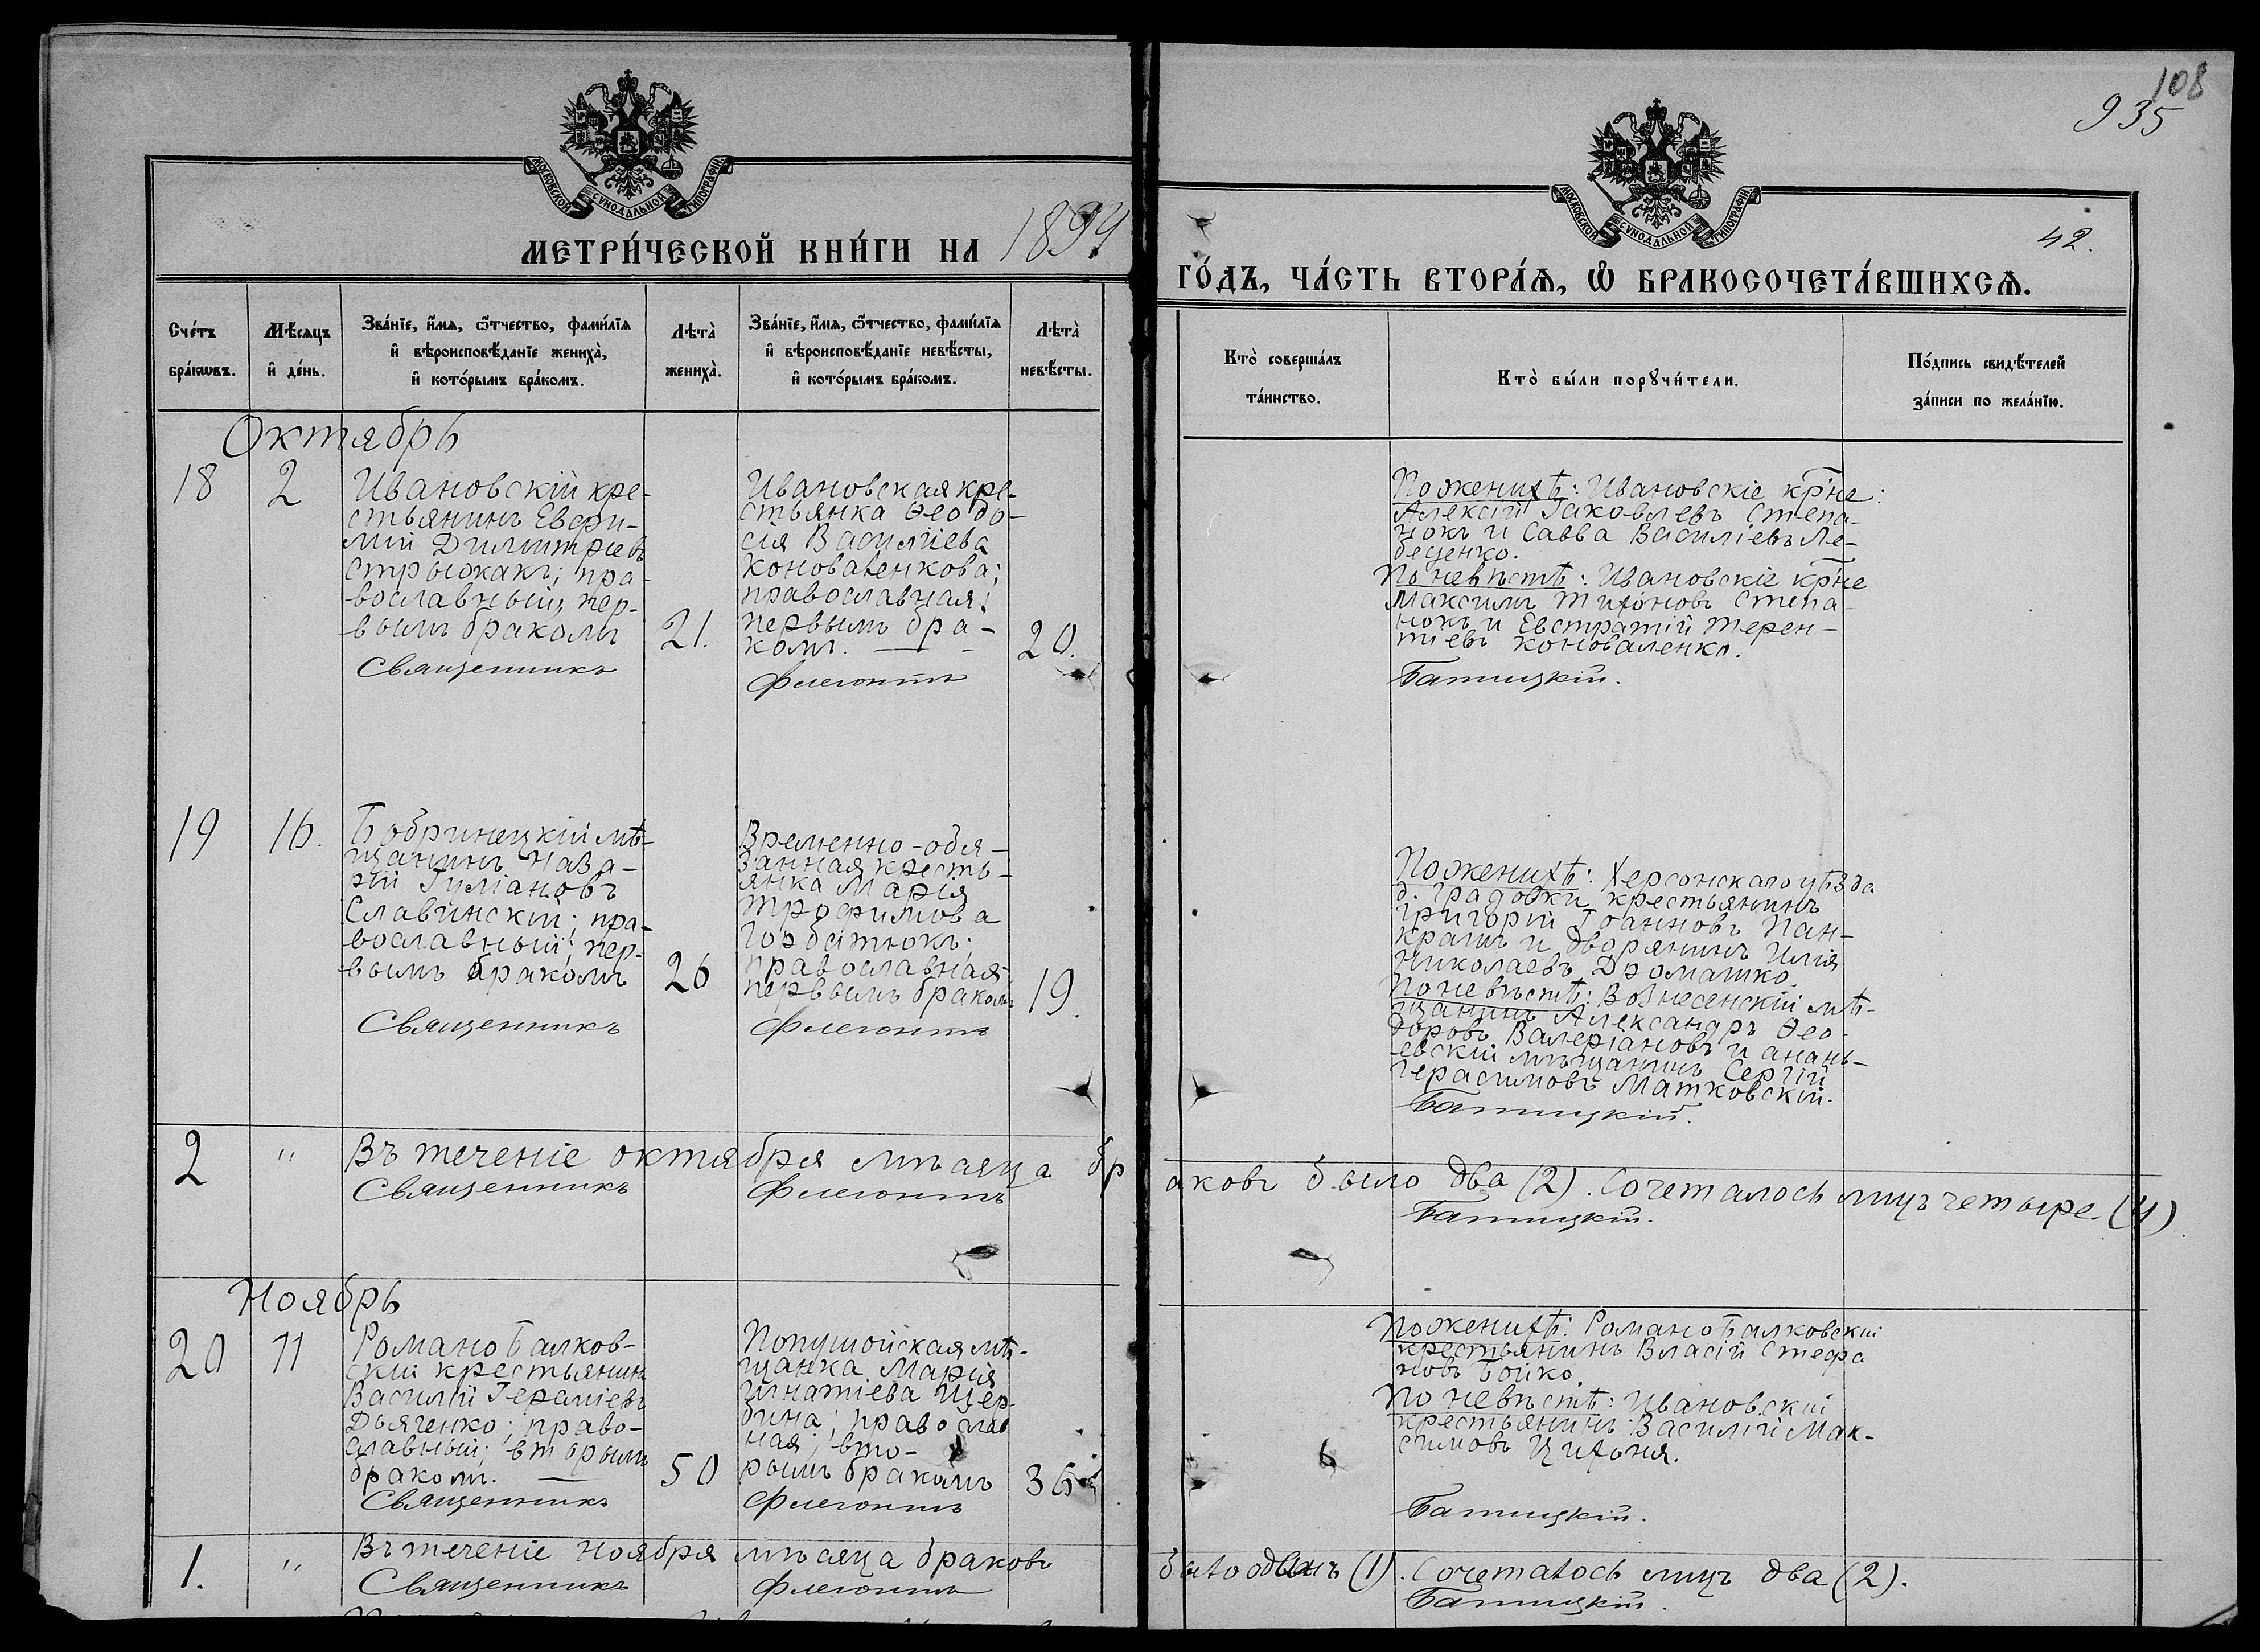 108
935
МОСКОВСКОЙ СѴНОДАЛЬНОЙ ТИПОГРАФІИ
МОСКОВСКОЙ СѴНОДАЛЬНОЙ ТИПОГРАФІИ
42.
МЕТРИ́ЧЕСКОЙ КНИ́ГИ НА 1894
ГО́ДЪ, ЧА́СТЬ ВТОРА́Ѧ, Ѡ҆ БРАКОСОЧЕТА́ВШИХСѦ.
Сче́тъ бра́кѡвъ.
Мѣ́сяцъ и҆ де́нь.
Зва́нїе, и҆́мѧ, ѻ҆́тчество, фами́лїѧ
и҆ вѣроисповѣ́данїе жениха̀,
и҆ кото́рымъ бра́комъ.
Лѣта̀ жениха̀.
Зва́нїе, и҆́мѧ, ѻ҆́тчество, фами́лїѧ
и҆ вѣроисповѣ́данїе невѣ́сты,
и҆ кото́рымъ бра́комъ.
Лѣта̀ невѣ́сты.
Кто̀ соверша́лъ та́инство.
Кто̀ бы́ли порꙋчи́тели.
По́дпись свидѣ́телей за́писи по жела́нїю.
Октябрь
18
2
Ивановскій кре-
стьянинъ Евѳи-
мій Димитріевъ
Стрыжакъ; пра-
вославный, пер-
вымъ бракомъ
21.
Ивановская кре-
стьянка Ѳеодо-
сія Василіева
Коноваленкова;
православная;
первымъ бра-
комъ.
20.
По женихѣ: Ивановскіе кр-не:
Алексій Іаковлевъ Степа-
нокъ и Савва Василіевъ Ле-
беденко.
По невѣстѣ: Ивановскіе кр-не
Максимъ Тихоновъ Степа-
нокъ и Евстратій Терен-
тіевъ Коноваленко.
Священникъ Флегонтъ Батицкій.
19
16.
Бобринецкій мѣ-
щанинъ Наза-
рій Іуліановъ
Славинскій; пра-
вославный; пер-
вымъ бракомъ
26
Временно-обя-
занная кресть-
янка Марія
Трофимова
Горбатюкъ;
православная;
первымъ бракомъ
19.
По женихѣ: Херсонскаго уѣзда
д. Градовки крестьянинъ
Григорій Іоанновъ Пан-
кратъ и дворянинъ Илія
Николаевъ Дромашко.
По невѣстѣ: Вознесенскій мѣ-
щанинъ Александръ Ѳео-
доровъ Валеріановъ и анань-
евскій мѣщанинъ Сергій
Герасимовъ Матковскій.
Священникъ Флегонтъ Батицкій.
2 " Въ теченіе октября мѣсяца браковъ было два (2). Сочеталось лицъ четыре. (4)
Священникъ Флегонтъ Батицкій.
Ноябрь
20
11
Романо Балков-
скій крестьянинъ
Василій
Дьяченко; право-
славный; вторымъ
бракомъ.
50
мѣ-
щанка Марія
Игнатіева Щер-
бина; православ
ная; вто-
рымъ бракомъ
36
По женихѣ: Романо Балковскій
крестьянинъ Власій Стефа
новъ Бойко.
По невѣстѣ: Ивановскій
крестьянинъ Василій Мак-
симовъ Цихоня.
Священникъ Флегонтъ Батицкій.
1. " Въ теченіе ноября мѣсяца браковъ было одинъ (1). Сочеталось лицъ два (2).
Священникъ Флегонтъ Батицкій.